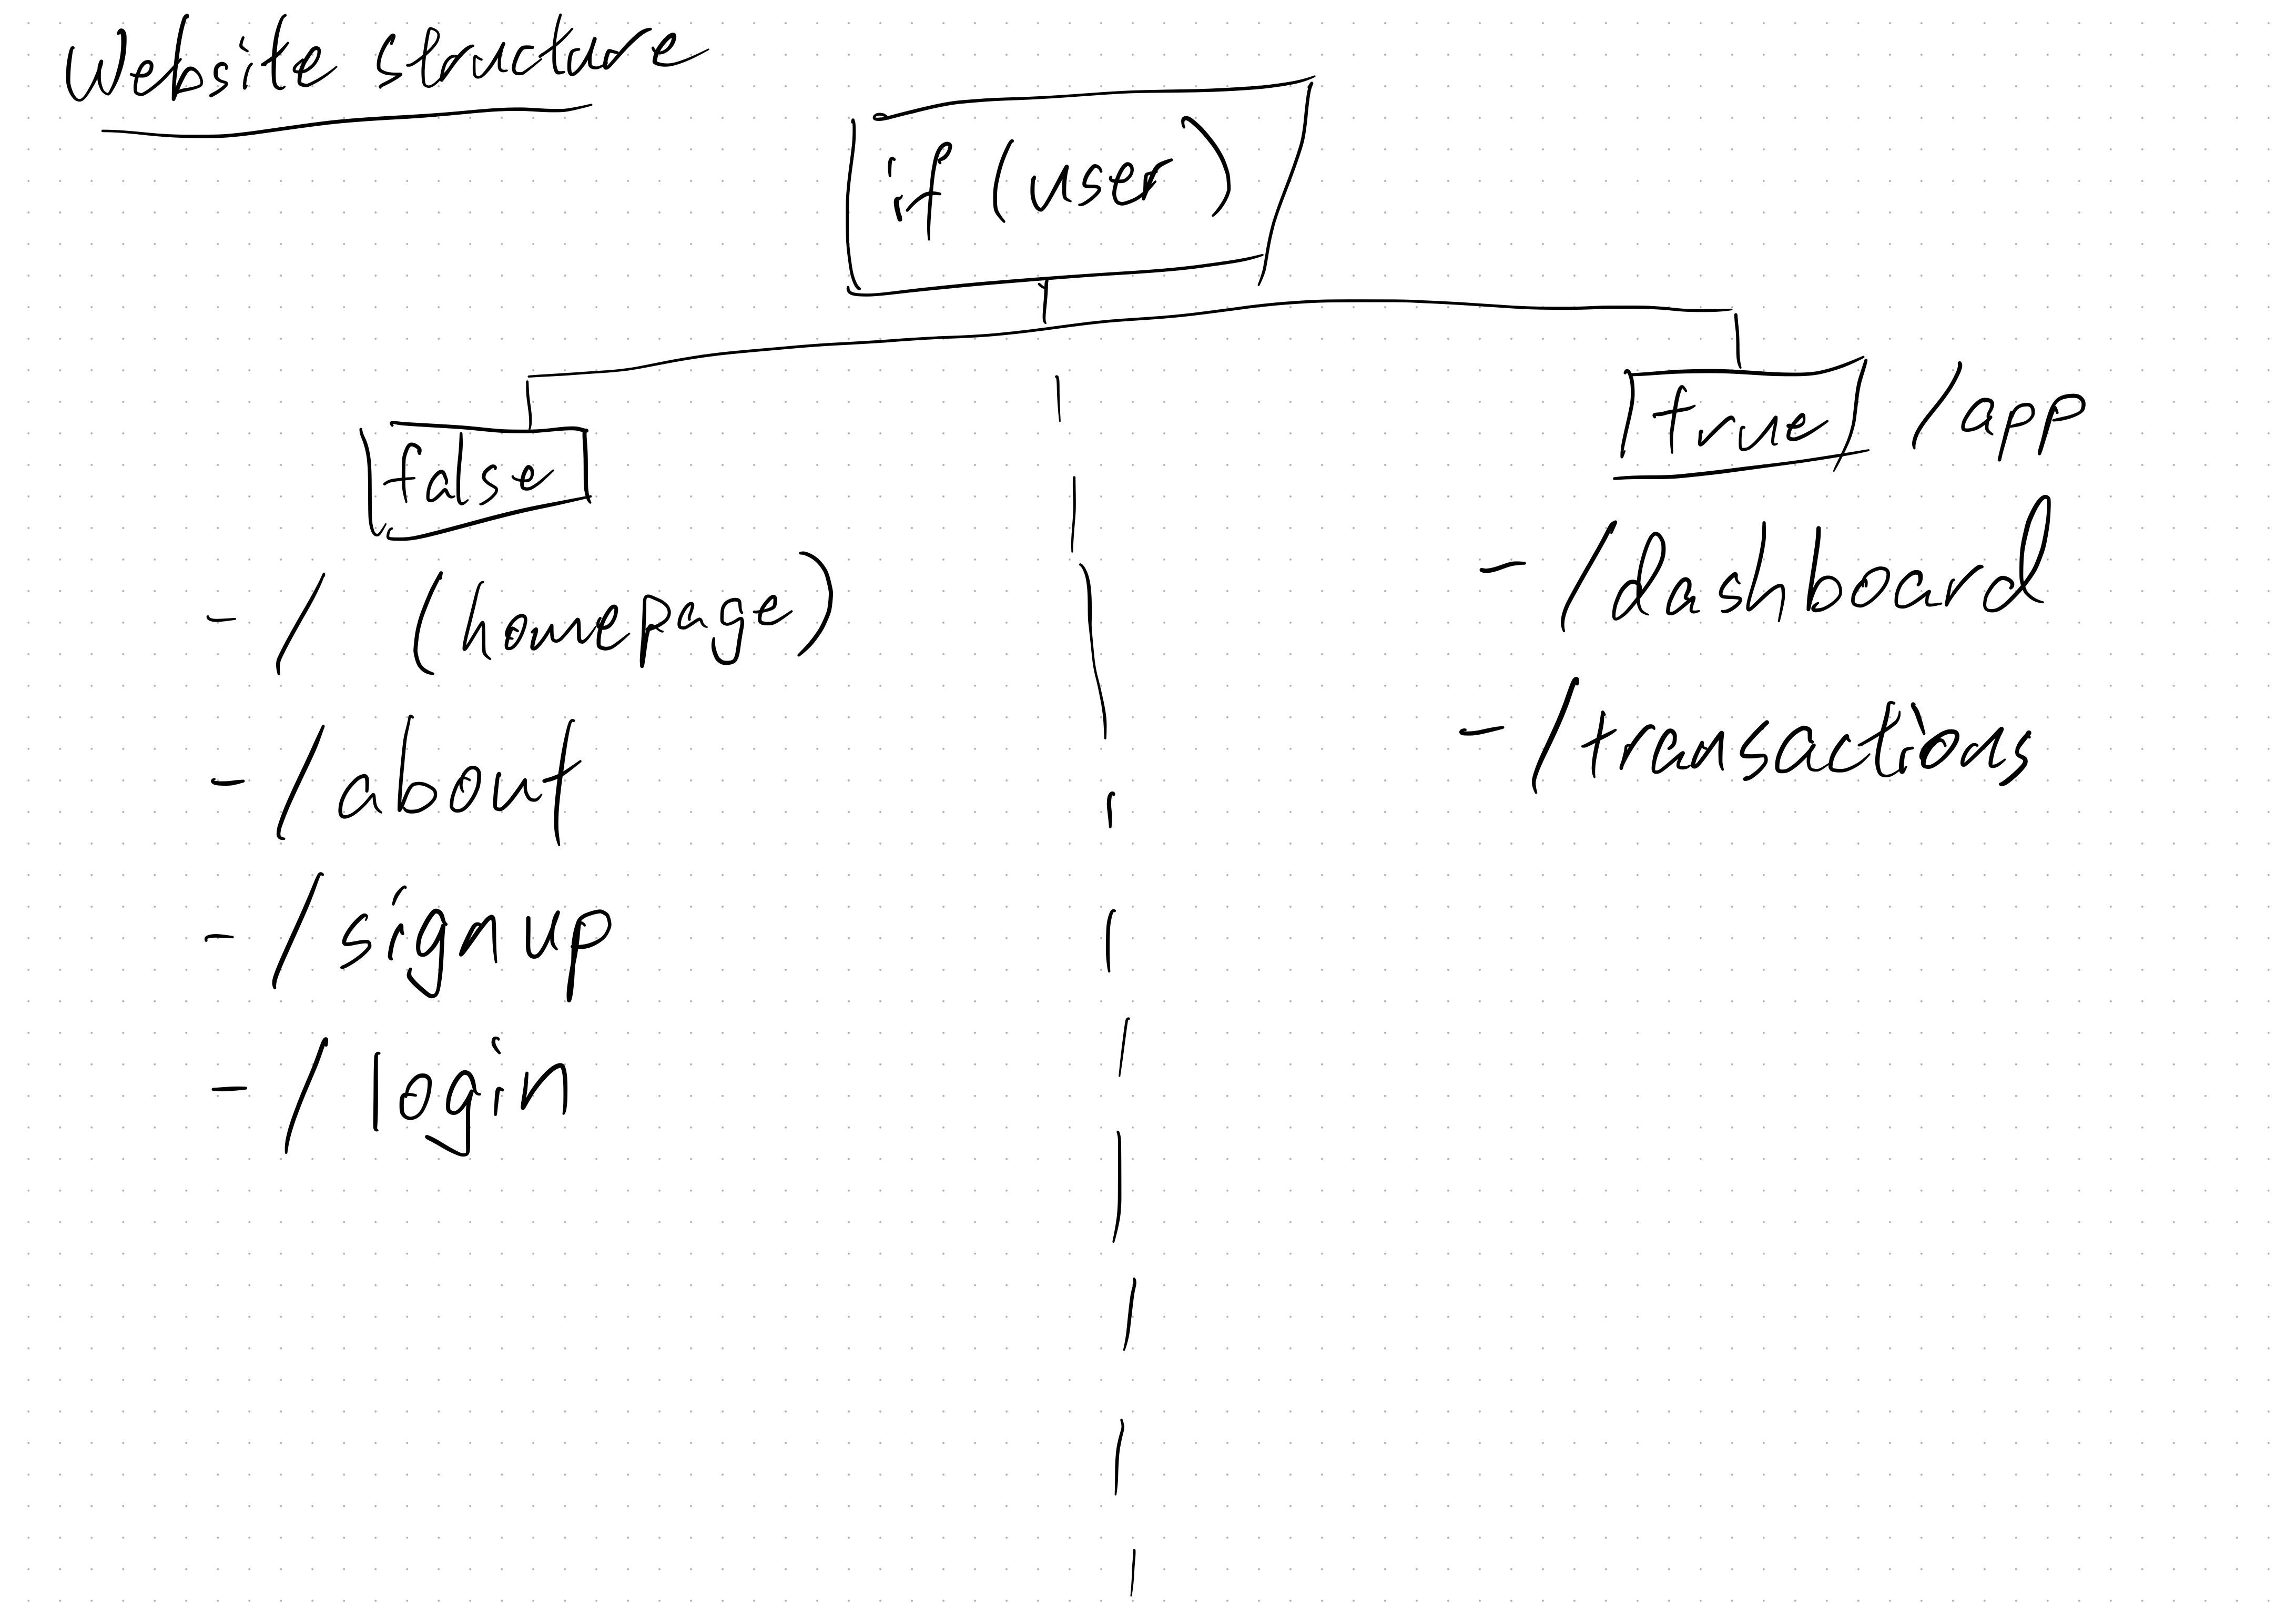 Website structure
if (user)
false
- / (homepage)
- /about
- /signup
- /login
true /app
- /dashboard
- /transactions